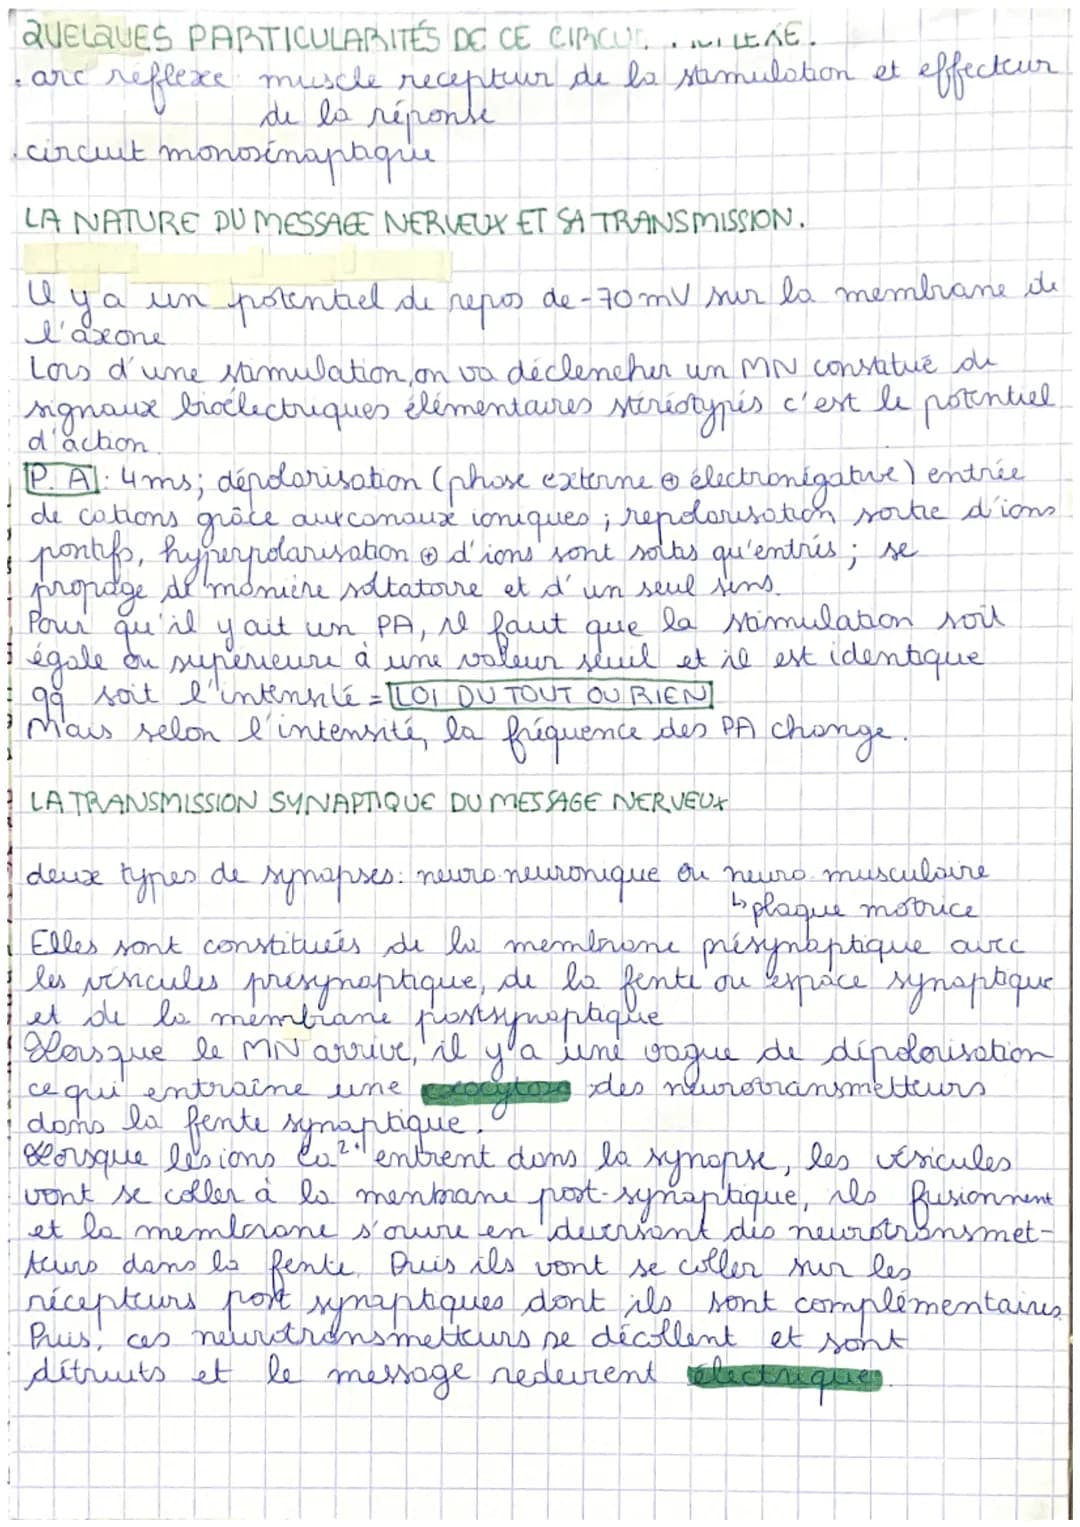 QUELQUES PARTICULARITÉS DE CE
. arc reflexe muscle recepteur de la stimulation et effecteur
de la réponse
. circuit monosinaptique
LA NATURE DU MESSAGE NERVEUX ET SA TRANSMISSION.
Il y a un potentiel de repos de -70 mV sur la membrane de
l'axone
Lors d'une stimulation, on va déclencher un MN constitué de
signaux bioélectriques élémentaires stéréotypés c'est le potentiel
d'action.
P. A : 4ms; dépolarisation (phase externe ⊕ électronégative) entrée
de cations grâce aux canaux ioniques ; repolarisation sortie d'ions
positifs, hyperpolarisation ⊕ d'ions sont sortis qu'entrés ; se
propage de manière saltatoire et d'un seul sens.
Pour qu'il y ait un PA, il faut que la stimulation soit
égale ou supérieure à une valeur seuil et il est identique
qq soit l'intensité = LOI DU TOUT OU RIEN
Mais selon l'intensité, la fréquence des PA change.
LA TRANSMISSION SYNAPTIQUE DU MESSAGE NERVEUX
deux types de synapses: neuro-neuronique ou neuro-musculaire
↳ plaque motrice
Elles sont constituées de la membrane présynaptique avec
les vésicules présynaptique, de la fente ou espace synaptique
et de la membrane postsynaptique
Lorsque le MN arrive, il y a une vague de dépolarisation
ce qui entraîne une exocytose des neurotransmetteurs
dans la fente synaptique.
Lorsque les ions Ca²⁺ entrent dans la synapse, les vésicules
vont se coller à la menbrane post-synaptique, ils fusionnent
et la membrane s'ouvre en deversant des neurotransmet-
teurs dans la fente. Puis ils vont se coller sur les
récepteurs post synaptiques dont ils sont complémentaires.
Puis, ces neurotransmetteurs se décollent et sont
détruits et le message redevient électrique.